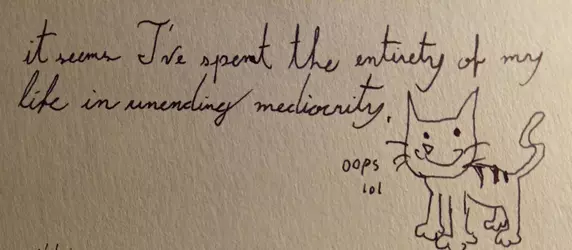 it seems I've spent the entirety of my
life in unending mediocrity.
oops
lol